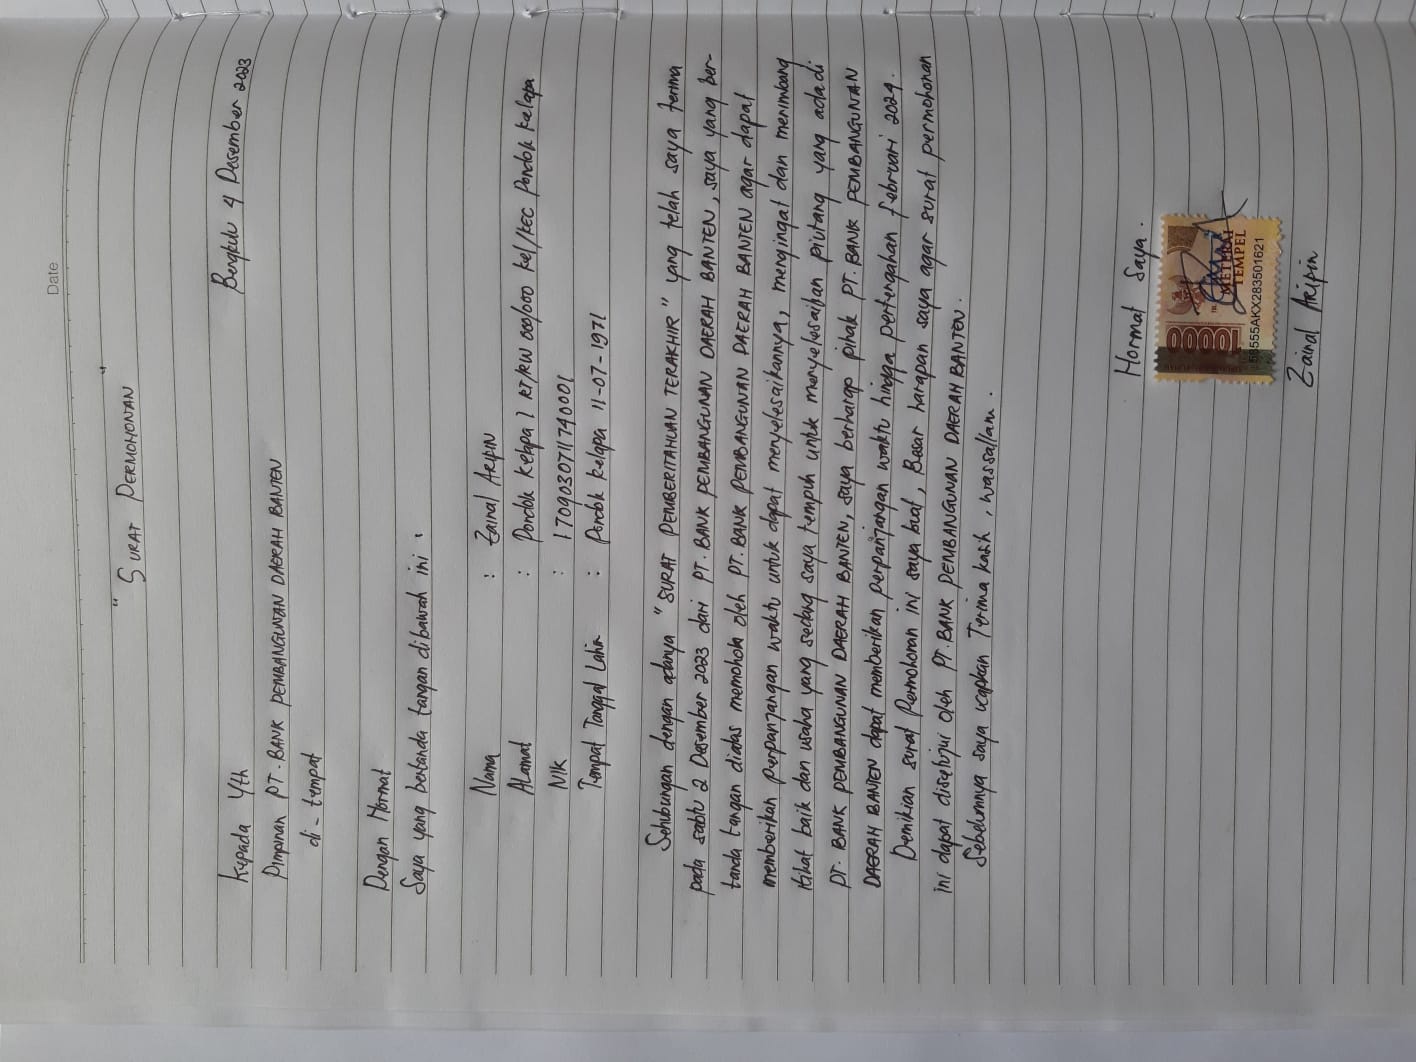 Date
" SURAT PERMOHONAN "
Bengkulu 4 Desember 2023
Kepada Yth
Pimpinan PT. BANK PEMBANGUNAN DAERAH BANTEN
di - tempat
Dengan Hormat
Saya yang bertanda tangan dibawah ini :
Nama : Zainal ARIPIN
Alamat : Pondok Kelapa 1 RT/RW 000/000 Kel/KEC Pondok Kelapa
NIK : 1709030711740001
Tempat Tanggal Lahir : Pondok Kelapa 11-07-1971
Sehubungan dengan adanya "SURAT PEMBERITAHUAN TERAKHIR" yang telah saya terima
pada sabtu 2 Desember 2023 dari PT. BANK PEMBANGUNAN DAERAH BANTEN, saya yang ber-
tanda tangan diatas memohon oleh PT. BANK PEMBANGUNAN DAERAH BANTEN agar dapat
memberikan perpanjangan waktu untuk dapat menyelesaikannya, mengingat dan menimbang
itikat baik dan usaha yang sedang saya tempuh untuk menyelesaikan piutang yang ada di
PT. BANK PEMBANGUNAN DAERAH BANTEN, saya berharap pihak PT. BANK PEMBANGUNAN
DAERAH BANTEN dapat memberikan perpanjangan waktu hingga pertengahan februari 2024.
Demikian surat Permohonan ini saya buat, Besar harapan saya agar surat permohonan
ini dapat disetujui oleh PT. BANK PEMBANGUNAN DAERAH BANTEN.
Sebelumnya saya ucapkan Terima kasih, wassallam.
Hormat Saya.
10000
METERAI
TEMPEL
58555AKX283501621
Zainal Aripin